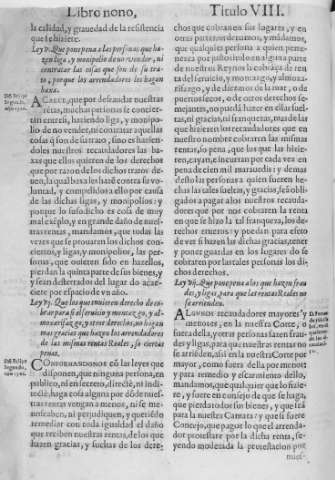 Libro nono,
Titulo VIII.
la calidad, y grauedad de la resistencia
que se hiziere.
Ley V. Que pone pena a las personas que ha-
zen liga, y monipodio de no vender, ni
contratar las cosas que son de su tra-
to, porque los arrendadores les hagan
baxa.
ACAECE, que por defraudar nuestras
rẽtas, muchas personas se concier-
tan entresi, haziendo liga, y monipo-
dio de no vender, ni contratar aquellas
cosas q̃ son de su trato, sino es hazien-
doles nuestros recaudadores las ba-
xas que ellos quieren de los derechos
que por razon de los dichos tratos de-
uen, la qual baxa les haze contra su vo-
luntad, y compelidos a ello por causa
de las dichas ligas, y monipodios: y
porque lo susodicho es cosa de muy
mal exẽplo, y en grande daño de nues-
tras rentas, mandamos, que todas las
vezes que se prouaren los dichos con-
ciertos, y ligas, y monipodios, las per-
sonas, que quisieren estar en hazerlos,
pierdan la quinta parte de sus bienes, y
sean desterrados del lugar do acae-
ciere por espacio de vn año.
Ley VI. Que los que tuuieren derecho de co-
brar para si el seruicio y montazgo, y al-
moxarifazgo, y otros derechos, no hagan
mas gracias que hazen los arrendadores
de las mismas rentas Reales, so ciertas
penas.
CONFORMANDONOS cõ las leyes que
disponen, que ninguna persona, en
publico, ni en secreto, directè, ni indi-
rectè, haga cosa alguna por dõde nues-
tras rentas vengan a menos, ni se me-
noscaben, ni perjudiquen, y queriẽdo
remediar con toda igualdad el daño
que reciben nuestras rentas, de los que
hazen gracias, y sueltas de los dere-
chos que cobran en sus lugares, y en
otras partes defendemos, y mãdamos,
que qualquier persona a quien pertene-
nezca por justo titulo en alguna parte
de nuestros Reynos la cobrãça de ren-
ta del seruicio, y montazgo, y almoxa-
rifazgo, y de diezmos de la mar, o de
puertos secos, o de otros derechos se-
mejantes, no pueda hazer en ellas suel-
tas, ni gracias, ni frãquezas, mas de las
que hizieren los recaudadores que en
en nuestro nombre cobraren las mismas
rentas, so pena, que los que las hizie-
ren, cayan, e incurran por cada vez en
pena de cien mil marauedis y demas
desto las personas a quien fueren he-
chas las tales sueltas, y gracias, seã obli-
gados a pagar a los nuestros recauda-
dores que por nos cobraren la renta
en que se hizo la tal franqueza, los de-
rechos enteros: y podrán para efeto
de ver si hazen las dichas gracias, tener
y poner guardas en los lugares do se
cobraren por las tales personas los di-
chos derechos.
Ley VII. Que pone pena a los que hazen frau-
des, y ligas, para que las rentas Reales no
se arrienden.
ALGVNOS recaudadores mayores y
menores, en la nuestra Corte, o
fuera della, y otras personas hazen frau-
des y ligas, para que nuestras rentas no
se arriẽden, assi en la nuestra Corte por
mayor, como fuera della por menor;
y para remedio y escarmiento dello,
mandamos, que qualquier que lo hizie-
re, y fuere en consejo de que se haga,
que pierda todos sus bienes, y que sea
para la nuestra Camara: y que si fuere
Concejo, que pague lo que el arrenda-
dor protestare por la dicha renta, se-
yendo moderada la protestacion por
nues-